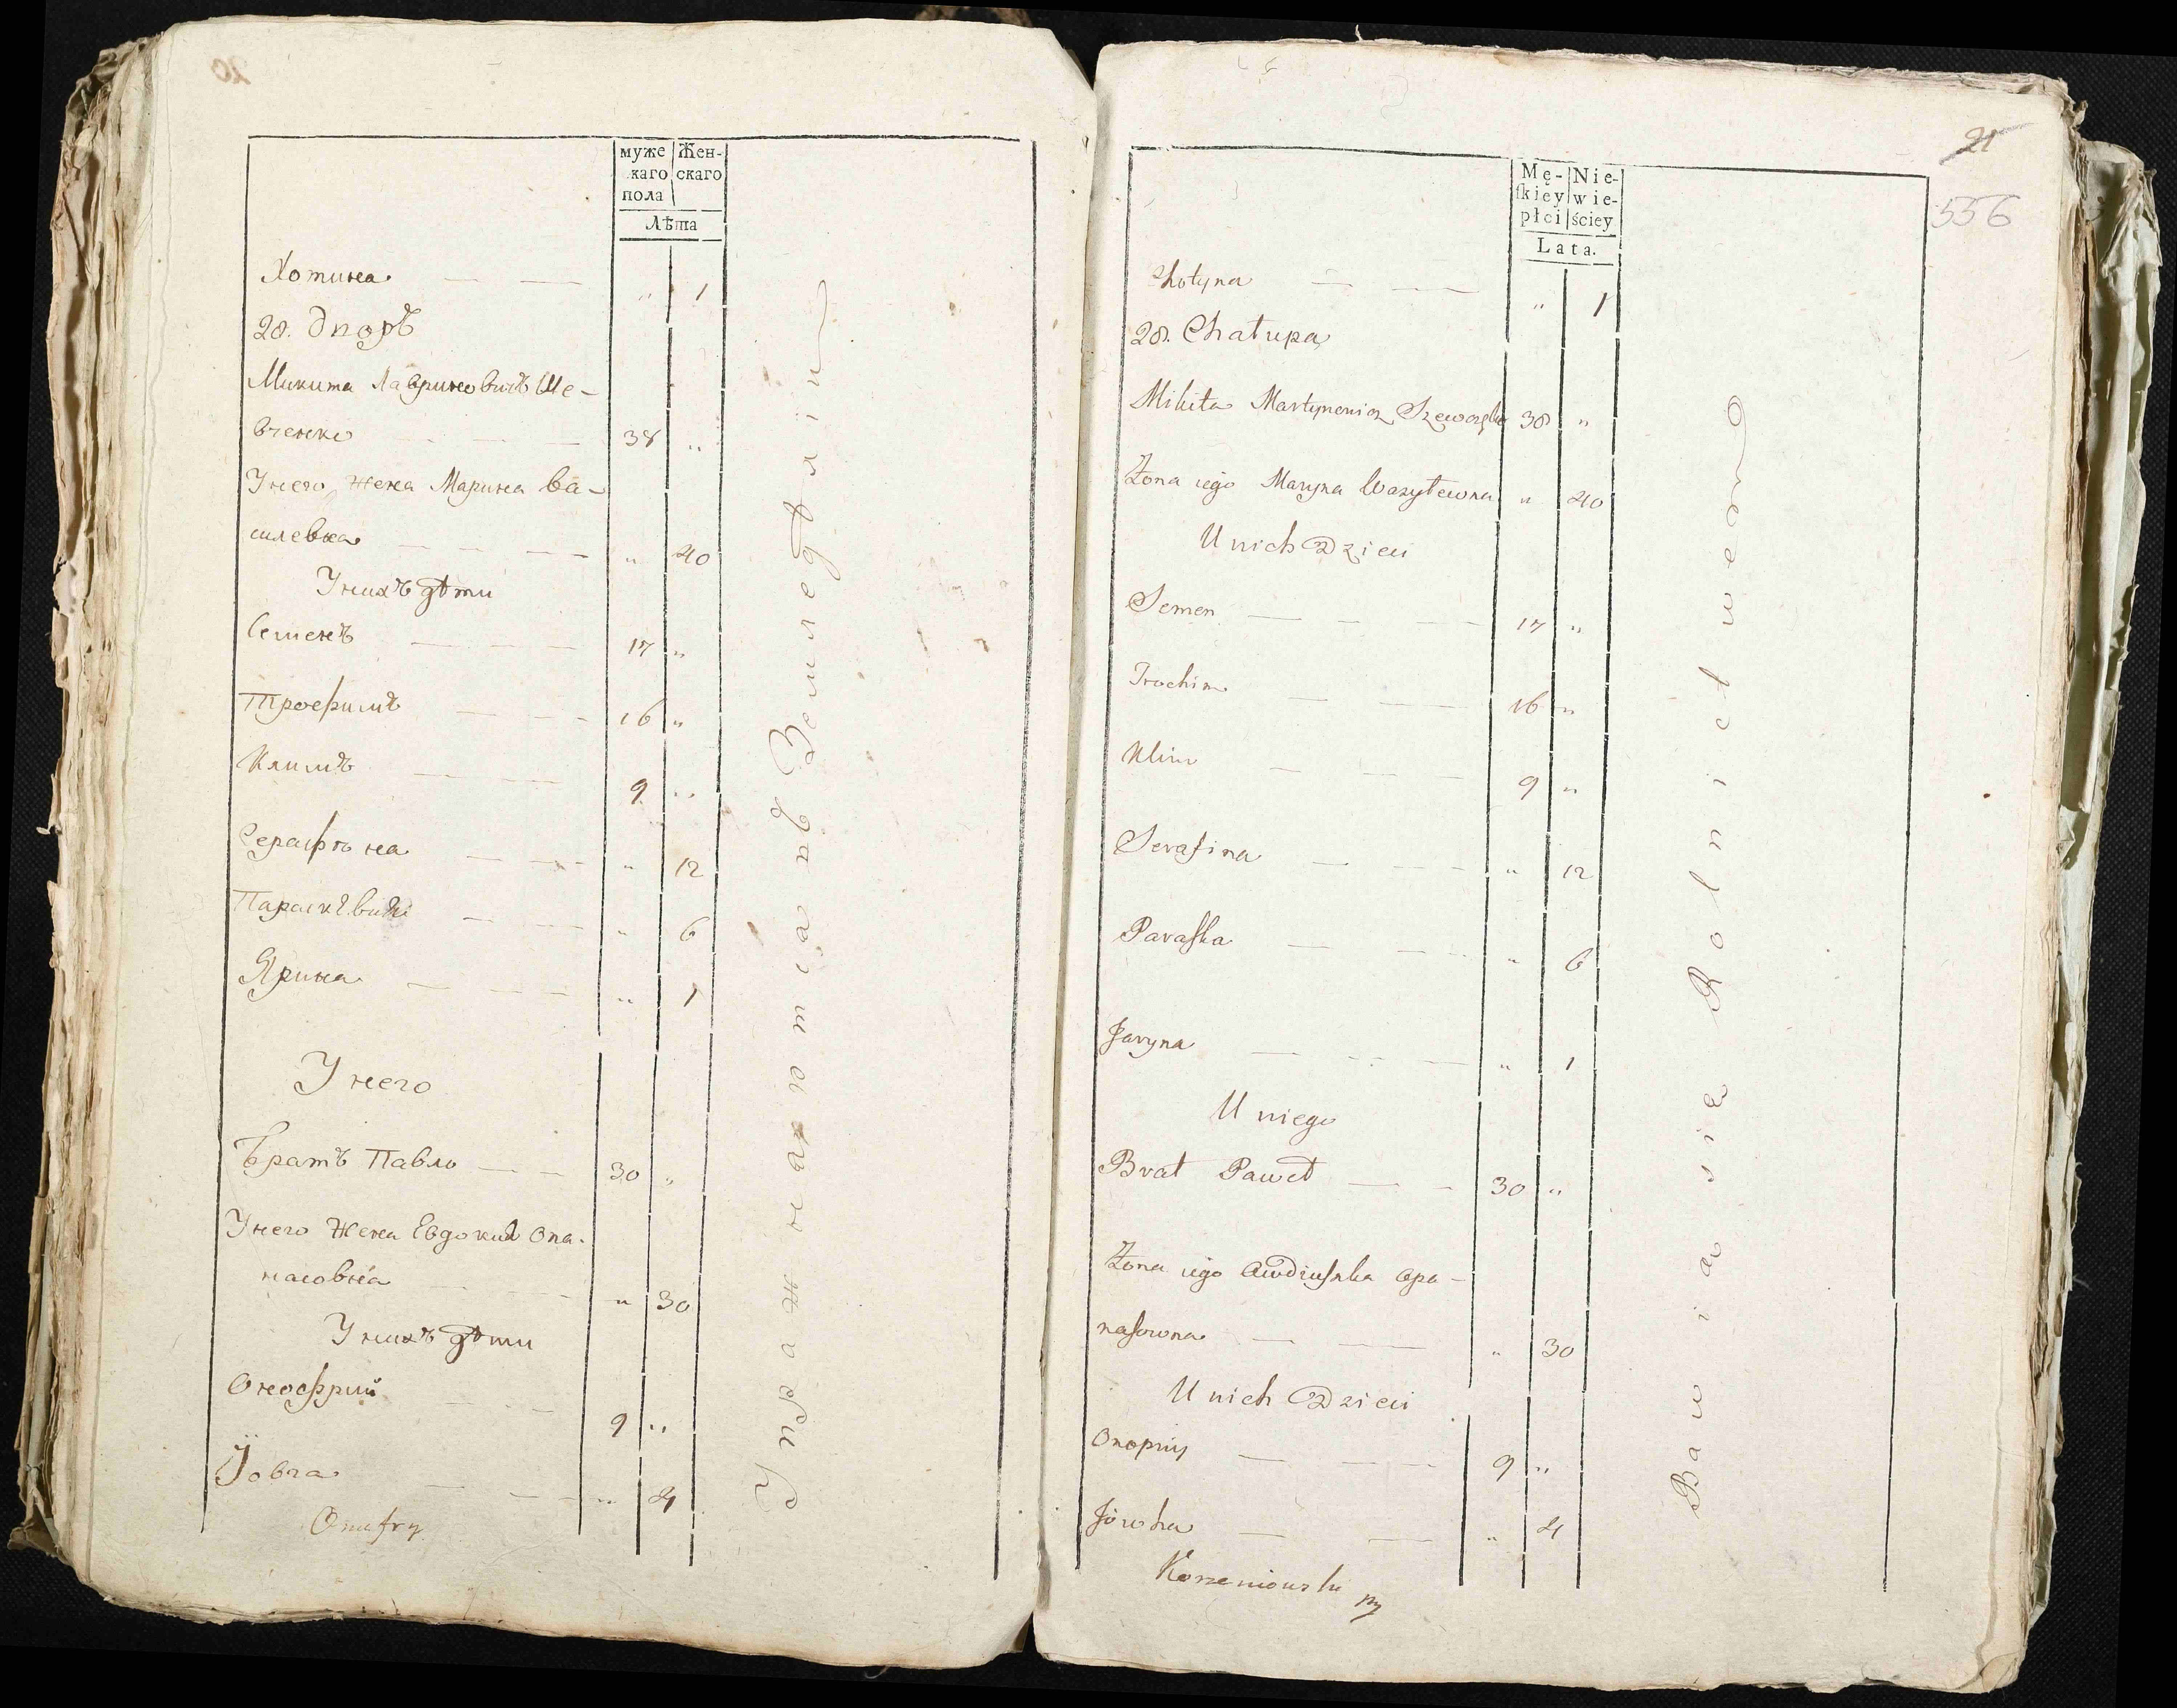 муже
каго
пола
Жен-
скаго
Лѣта
Хотина — — " 1
28. Дворъ
Микита Лавриновичъ Ше-
вченко — — — 38 "
Унего жена Марина Ва-
силевна — — — " 40
Унихъ дѣти
Семенъ — — — 17 "
Трофимъ — — — 16 "
Климъ — — 9 "
Серафина — — — " 12
— — — " 6
Ярина — — — " 1
Унего
Братъ Павло — — 30 "
Унего жена Евдокия Опа-
насовна — — " 30
Унихъ дѣти
Онофрий — — — 9 "
— — — " 4
Onufry
Упражняются въ Земледѣліи
21
556
Mę-
ſkiey
płci
Nie-
wie-
ściey
Lata.
Chotyna — — — " 1
28. Chałupa
Mikita Martynowicz 38 "
Żona iego Maryna Wasylewna " 40
U nich Dzieci
Semen — — — — 17 "
Trochim — — — 16 "
Klim — — — 9 "
Serafina — — — " 12
Paraſka — — — " 6
Jaryna — — — " 1
U niego
Brat Paweł — — 30 "
Żona iego Opa-
naſowna — — " 30
U nich Dzieci
Onopriy — — — 9 "
Jówha — — " 4
Korzeniowski
Bawia się Rolnictwem